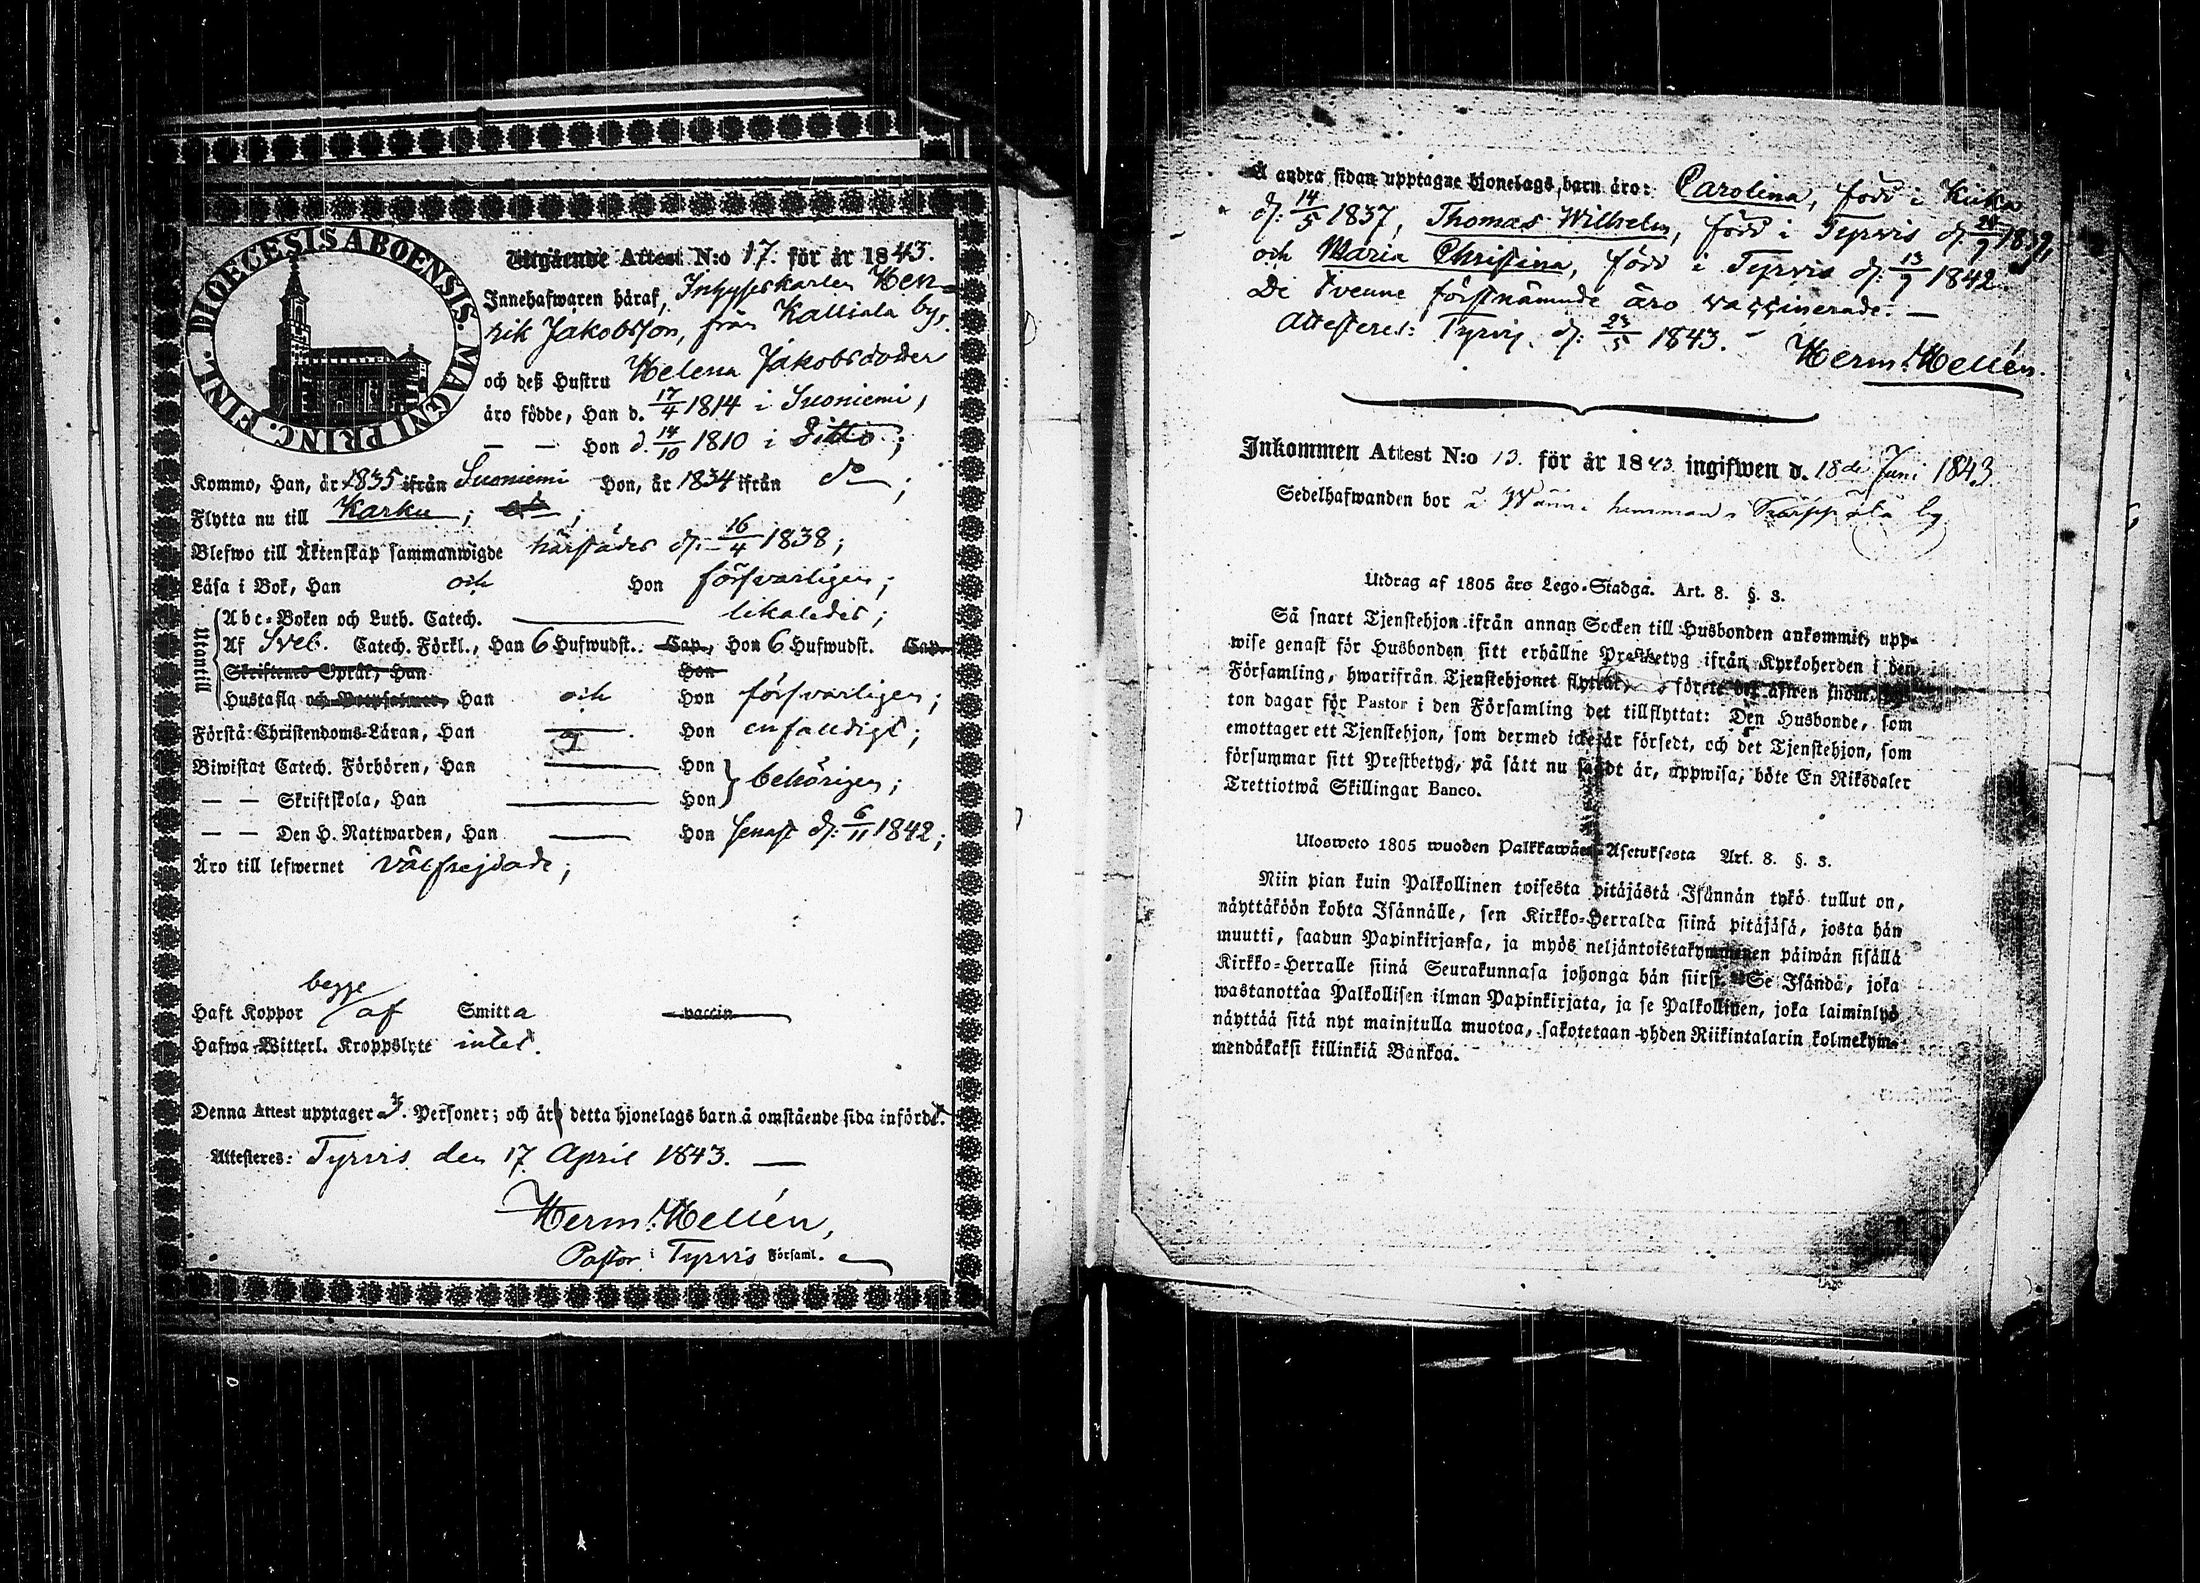 DIOECESIS ABOENSIS. MAGNI PRINC. FINL.
Utgående Attest N:o 17. för år 1843.
Innehafwaren häraf, Inhyseskarlen Hen-
rik Jakobsson, från Kalliala by,
och deß Hustru Helena Jakobsdotter
äro födde, Han d. 17/4 1814 i Suoniemi,
— — Hon d. 14/10 1810 i Ditto;
Kommo, Han, år 1835 ifrån Suoniemi Hon, år 1834 ifrån do;
Flytta nu till Karku;
Blefwo till Äktenskap sammanwigde härstädes d: 16/4 1838;
Läsa i Bok, Han och Hon försvarligen;
Utantill
Abc-Boken och Luth. Catech. likaledes;
Af Sveb. Catech. Förkl., Han 6 Hufwudst. Cap., Hon 6 Hufwudst. Cap.
Skriftenes Språk, Han Hon
Hustafla och Botpsalmer, Han och Hon försvarligen;
Förstå Christendoms-Läran, Han Hon enfaldigt;
Biwistat Catech. Förhören, Han Hon behörigen;
— — Skriftskola, Han Hon
— — Den H. Nattwarden, Han Hon senast d: 6/11 1842;
Äro till lefwernet välfrejdade;
begge
Haft Koppor af Smitta vaccin
Hafwa Witterl. Kroppslyte intet.
Denna Attest upptager Personer; och äro detta hjonelags barn å omstående sida införde.
Attesteres: Tyrvis den 17 April 1843. —
Herm: Hellén,
Pastor i Tyrvis Församl.
Å andra sidan upptagne hjonelags barn äro: Carolina, född i Kiika
d: 14/5 1837, Thomas Wilhelm, född i Tyrvis d: 1839,
och Maria Christina, född i Tyrvis d: 13/9 1842.
De tvenne förstnämnde äro vaccinerade. —
Attesteres: Tyrvis d: 23/5 1843.
Herm: Hellén.
Inkommen Attest N:o 13. för år 1843 ingifwen d. 18de Juni 1843.
Sedelhafwanden bor å hemman by
Utdrag af 1805 års Lego-Stadga. Art. 8. §. 3.
Så snart Tjenstehjon ifrån annan Socken till Husbonden ankommit, upp-
wise genast för Husbonden sitt erhållne Prestbetyg ifrån Kyrkoherden i den
Församling, hwarifrån Tjenstehjonet flyttat, förete det äfwen inom
ton dagar för Pastor i den Församling det tillflyttat: Den Husbonde, som
emottager ett Tjenstehjon, som dermed icke är försedt, och det Tjenstehjon, som
försummar sitt Prestbetyg, på sätt nu sagdt är, uppwisa, böte En Riksdaler
Trettiotwå Skillingar Banco.
Ulosweto 1805 wuoden Palkkawäen-Asetuksesta Art. 8. §. 3.
Niin pian kuin Palkollinen toisesta pitäjästä Isännän tykö tullut on,
näyttäköön kohta Isännälle, sen Kirkko-Herralda siinä pitäjäsä, josta hän
muutti, saadun Papinkirjansa, ja myös neljäntoistakymmenen päiwän sisällä
Kirkko-Herralle siinä Seurakunnasa johonga hän siirsi. Se Isändä, joka
wastanottaa Palkollisen ilman Papinkirjata, ja se Palkollinen, joka laiminlyö
näyttää sitä nyt mainitulla muotoa, sakotetaan yhden Riikintalarin kolmekym-
mendäkaksi killinkiä Bankoa.